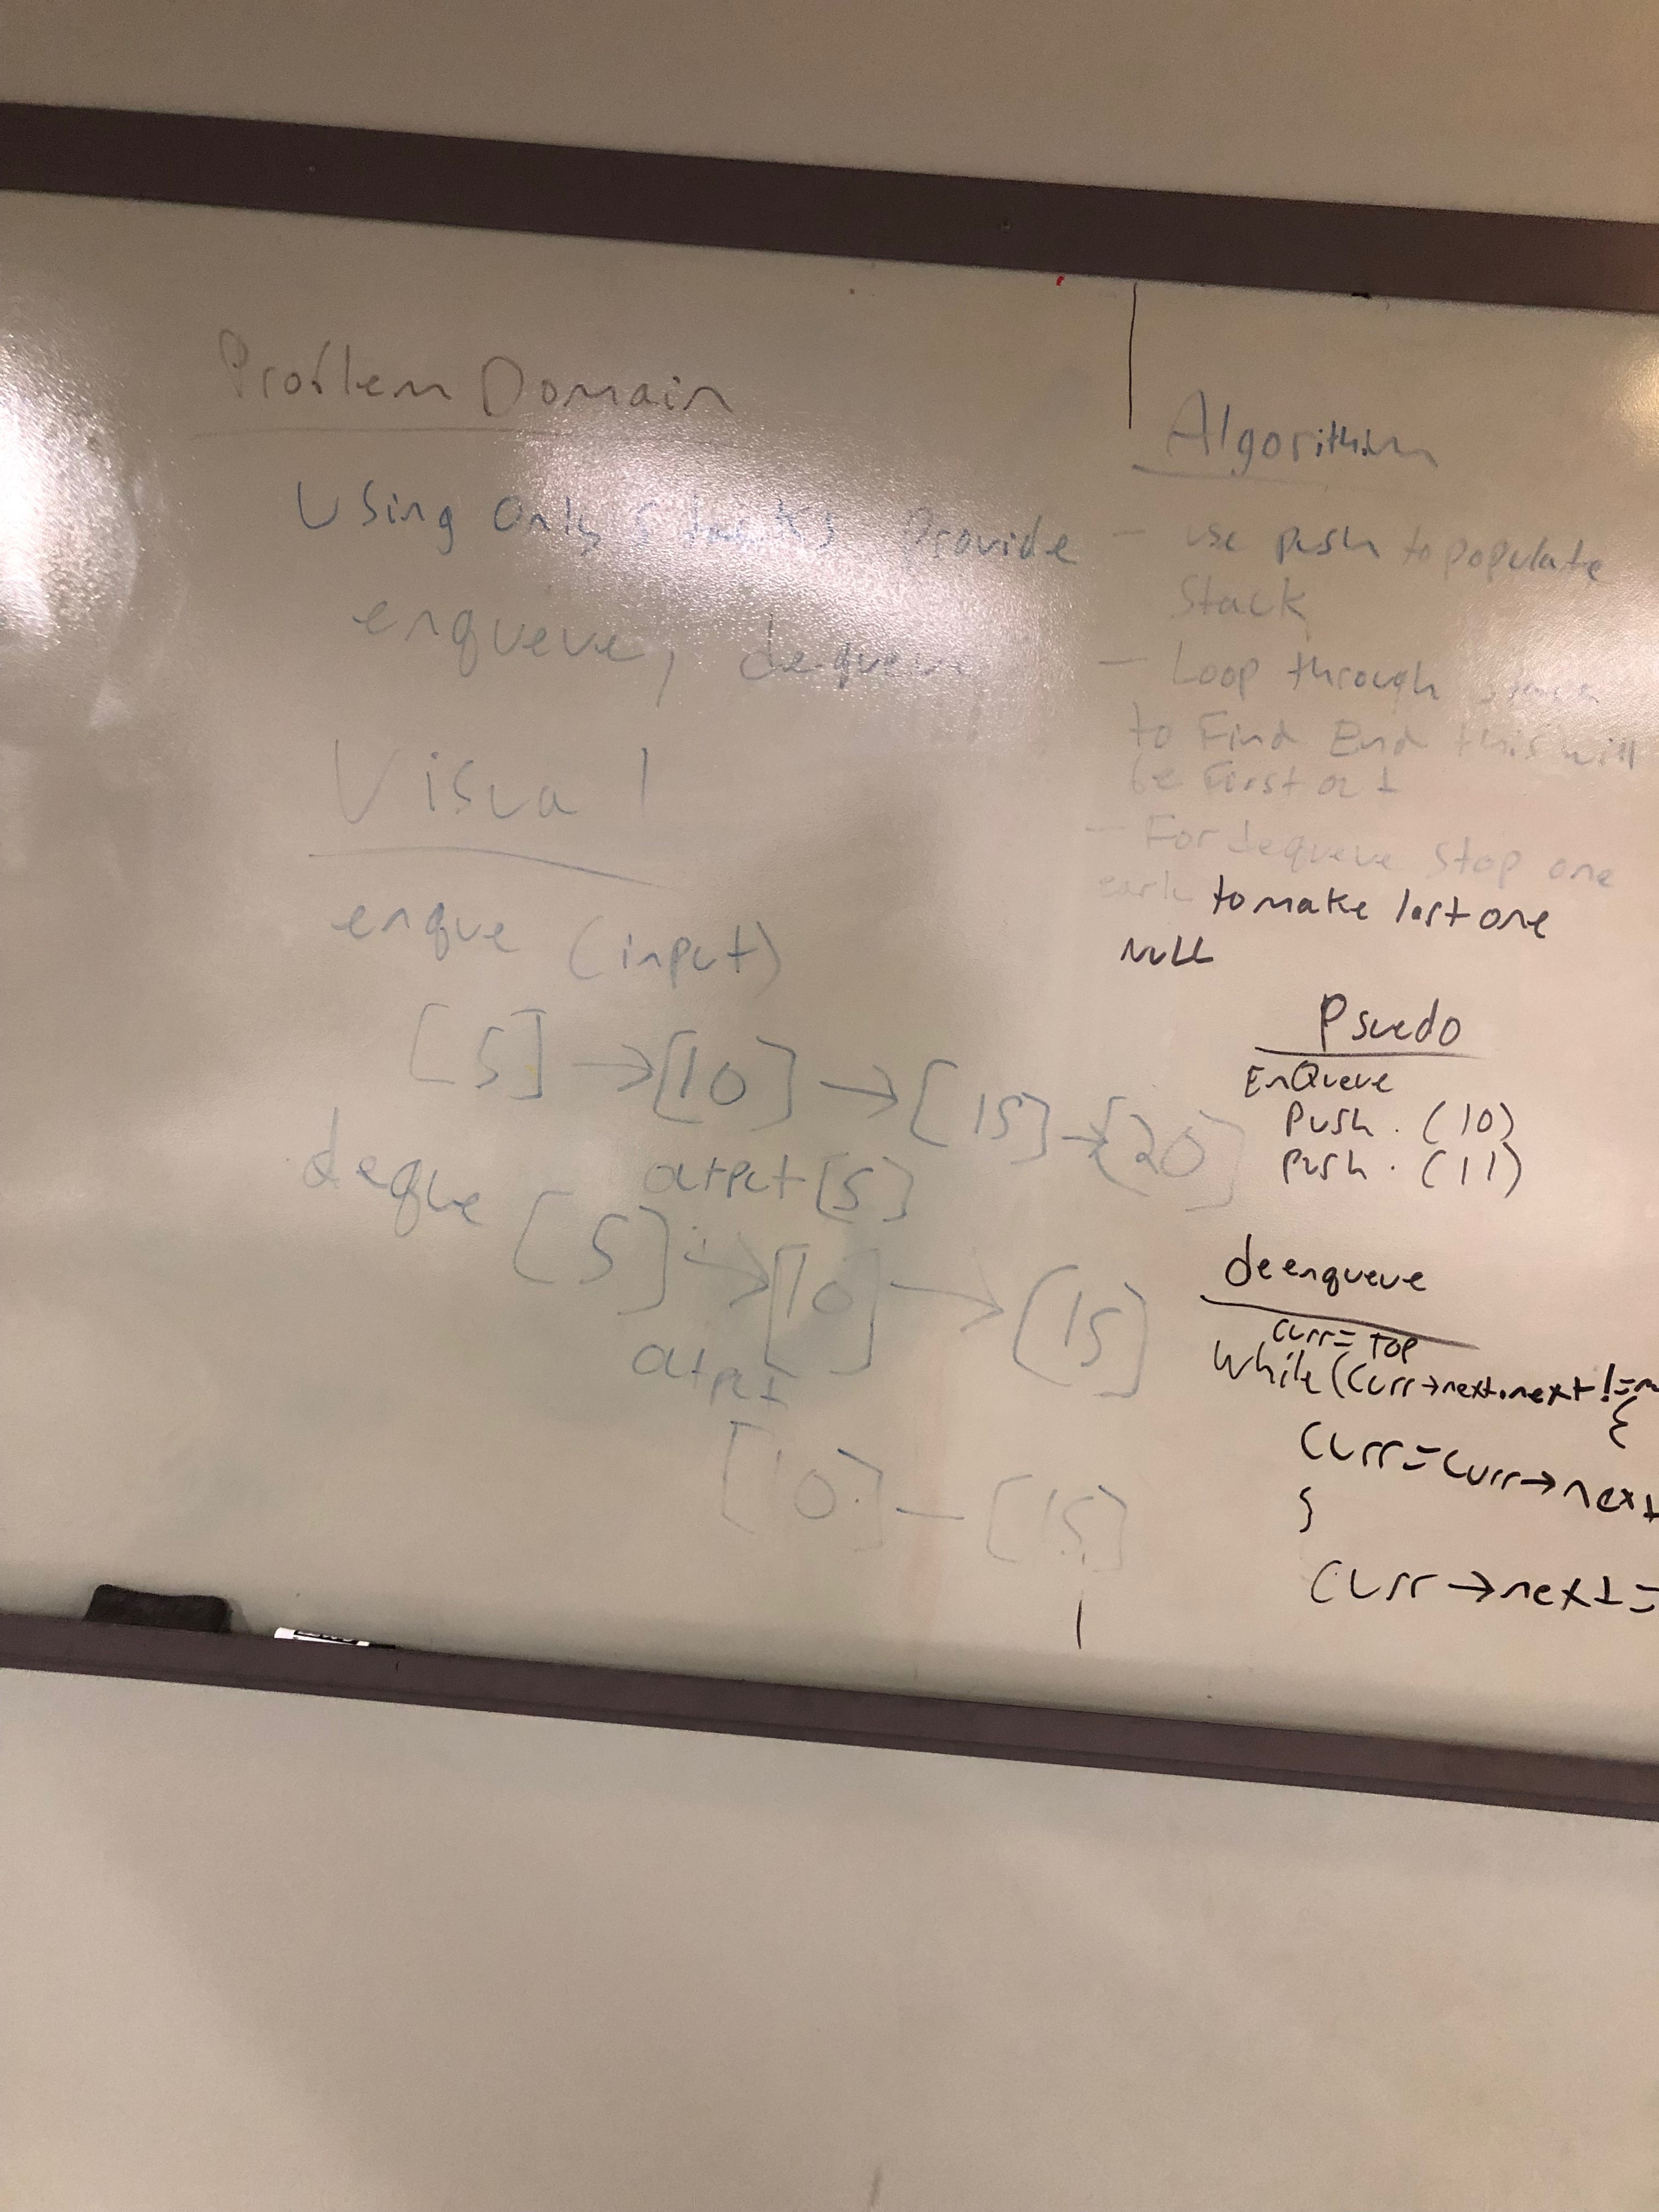 Problem Domain
Using only stacks provide
enqueue, dequeue
Visual
enque (input)
[5] → [10] → [15] → [20]
deque output [5]
[5] → [10] → [15]
output
[10] — [15]
Algorithim
- use push to populate
Stack
- Loop through
to Find End this will
be First out
- For dequeue Stop one
to make last one
NULL
Psuedo
EnQueue
Push . (10)
push . (11)
deenqueue
curr = Top
While (curr→next.next !=
{
curr = curr → next
}
curr → next =